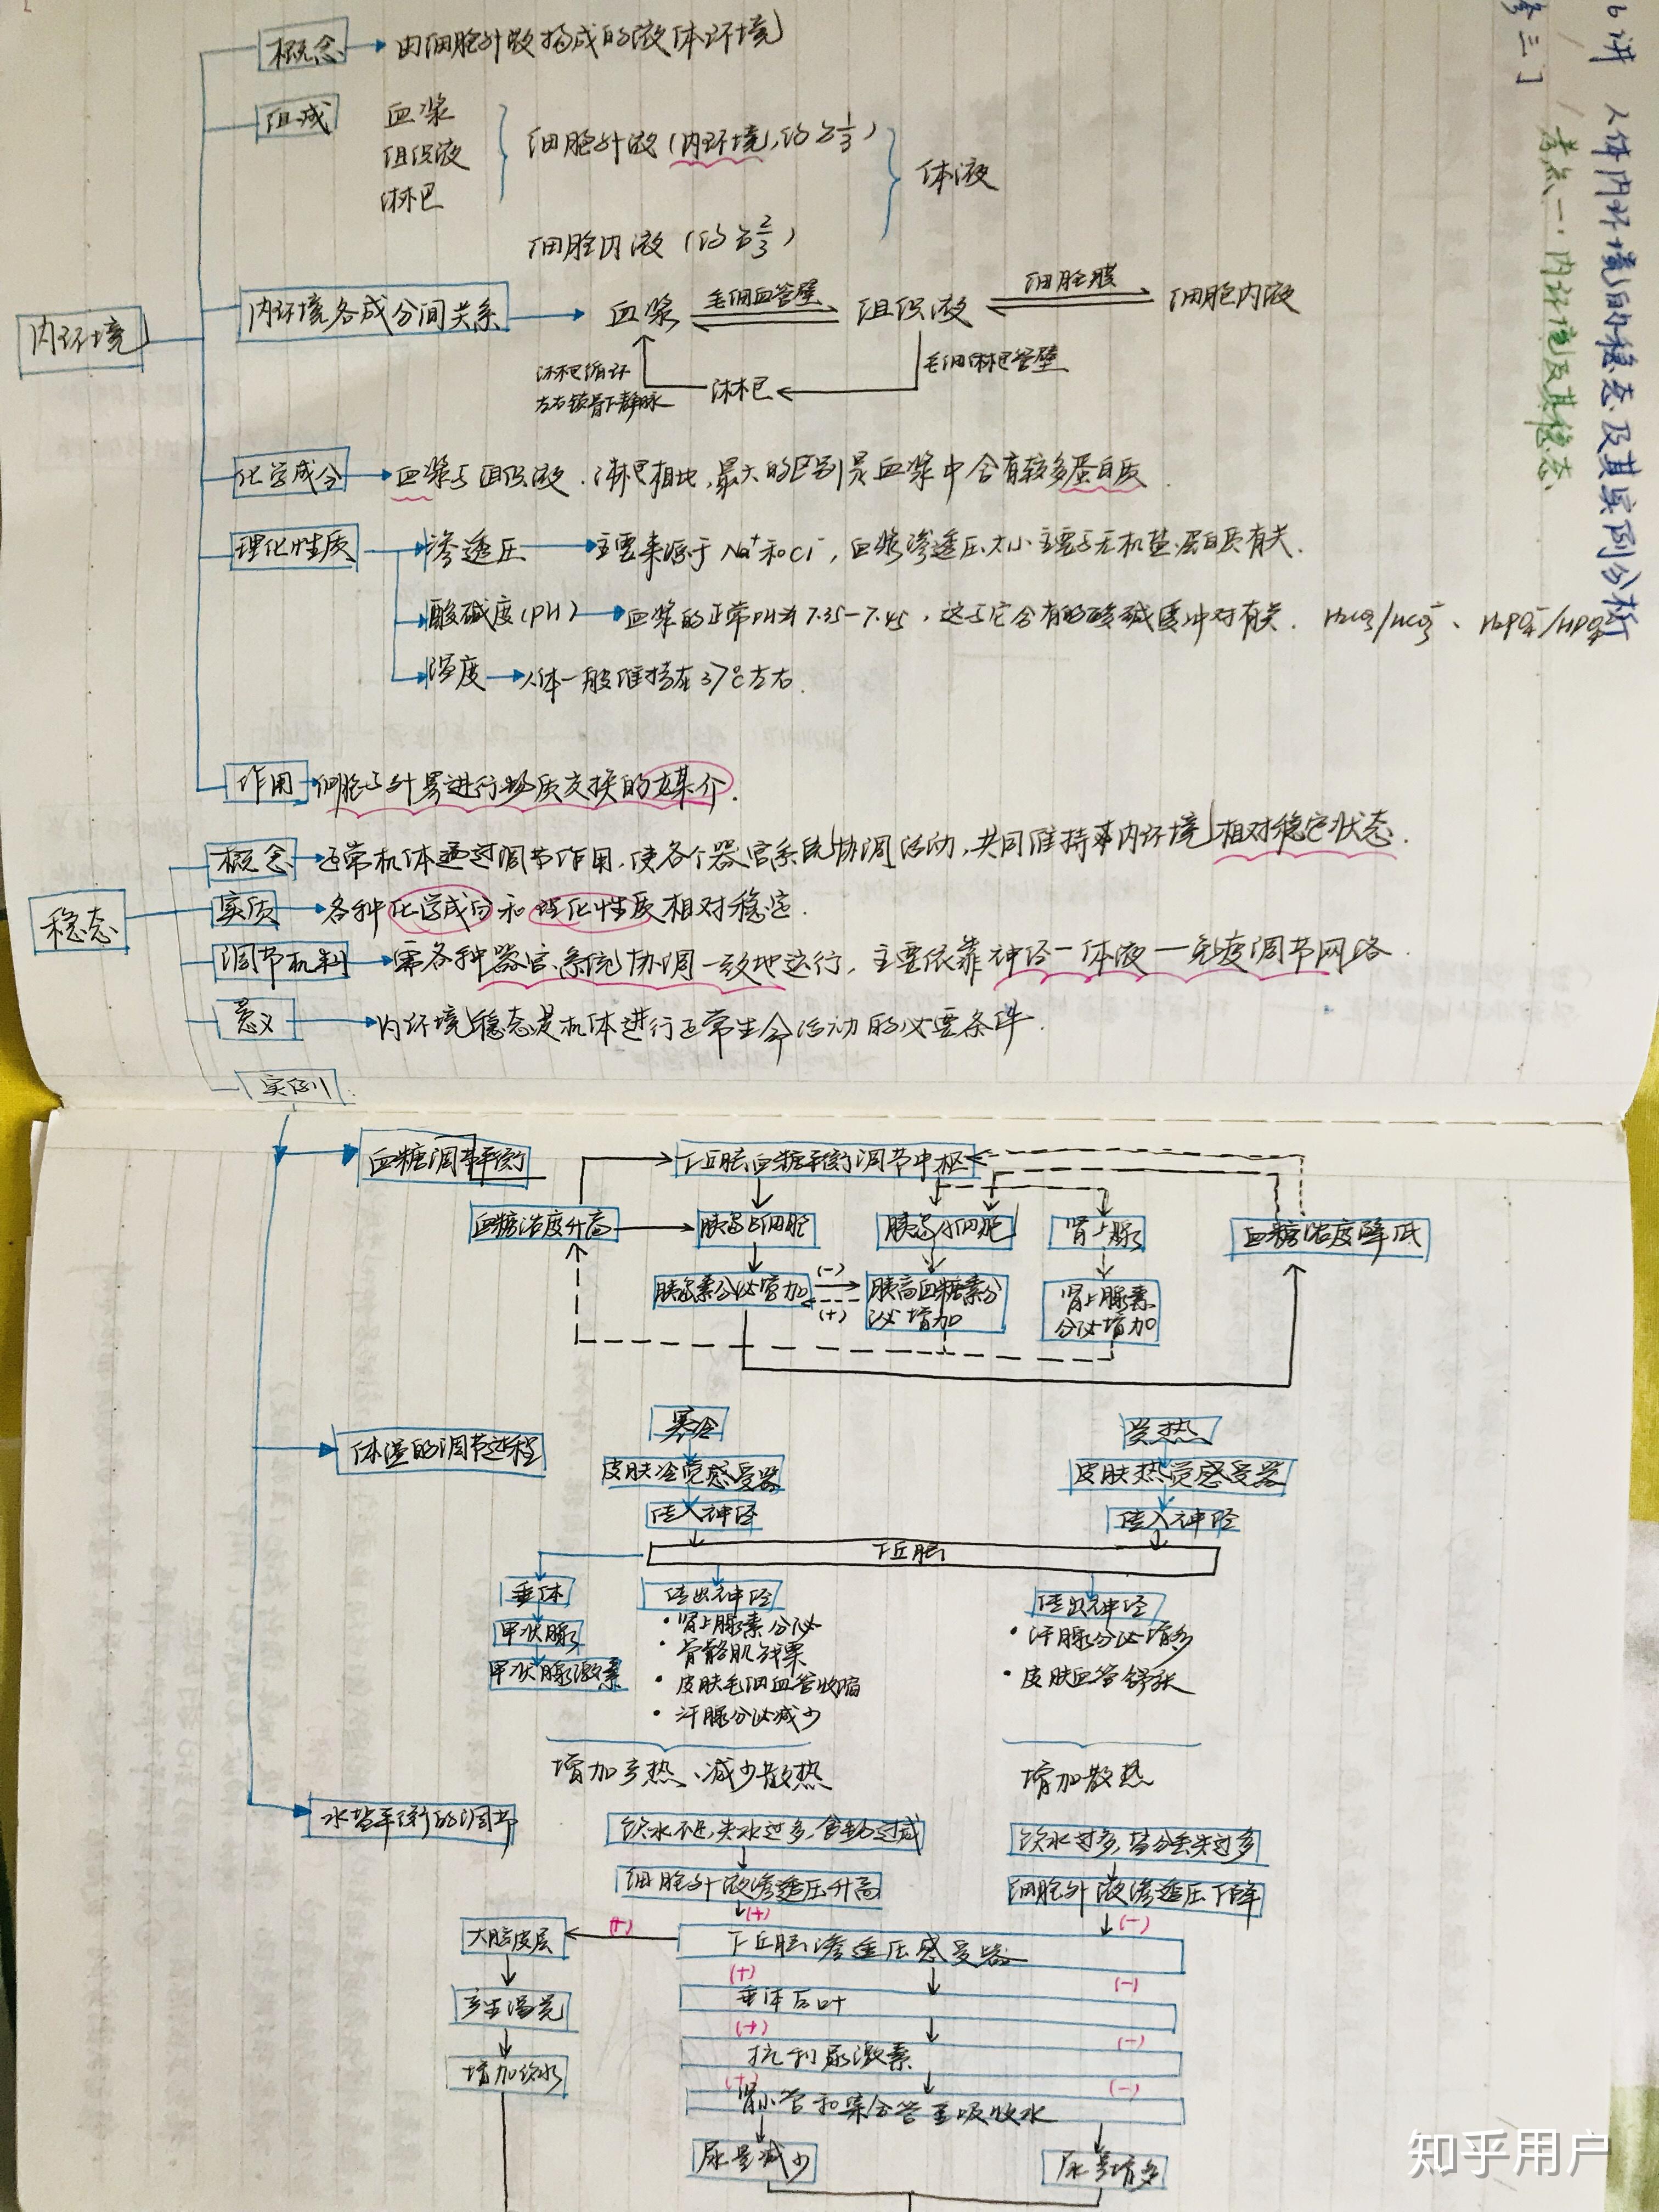 6讲 人体内环境的稳态及其实例分析
考点一:内环境及其稳态
内环境
概念 由细胞外液构成的液体环境
组成
血浆
组织液
淋巴
细胞外液(内环境,约占1/3)
体液
细胞内液(约占2/3)
内环境各成分间关系 血浆 毛细血管壁 组织液 细胞膜 细胞内液
淋巴循环
左右锁骨下静脉
淋巴
毛细淋巴管壁
化学成分 血浆与组织液、淋巴相比,最大的区别是血浆中含有较多蛋白质
理化性质 渗透压 主要来源于Na⁺和Cl⁻,血浆渗透压大小主要与无机盐、蛋白质有关.
酸碱度(PH) 血浆的正常PH为7.35-7.45,这与它含有的酸碱缓冲对有关. H₂CO₃/HCO₃⁻、H₂PO₄⁻/HPO₄²⁻
温度 人体一般维持在37℃左右.
作用 细胞与外界进行物质交换的媒介.
稳态
概念 正常机体通过调节作用,使各个器官系统协调活动,共同维持内环境相对稳定状态.
实质 各种化学成分和理化性质相对稳定.
调节机制 需各种器官、系统协调一致地运行,主要依靠神经—体液—免疫调节网络.
意义 内环境稳态是机体进行正常生命活动的必要条件.
实例
血糖调节平衡
下丘脑血糖平衡调节中枢
血糖浓度升高 胰岛B细胞 胰岛A细胞 肾上腺 血糖浓度降低
胰岛素分泌增加 (-) (+) 胰高血糖素分泌增加 肾上腺素分泌增加
体温的调节过程
寒冷 炎热
皮肤冷觉感受器 皮肤热觉感受器
传入神经 传入神经
下丘脑
垂体 传出神经 传出神经
甲状腺
甲状腺激素
·肾上腺素分泌
·骨骼肌战栗
·皮肤毛细血管收缩
·汗腺分泌减少
·汗腺分泌增多
·皮肤血管舒张
增加产热、减少散热 增加散热
水盐平衡的调节
饮水不足,失水过多,食物过咸 饮水过多,盐分丢失过多
细胞外液渗透压升高 细胞外液渗透压下降
(+) (-)
大脑皮层 (+) 下丘脑渗透压感受器
(+) (-)
产生渴觉 垂体后叶
(+) (-)
增加饮水 抗利尿激素
(+) (-)
肾小管和集合管重吸收水
尿量减少 尿量增多
知乎用户